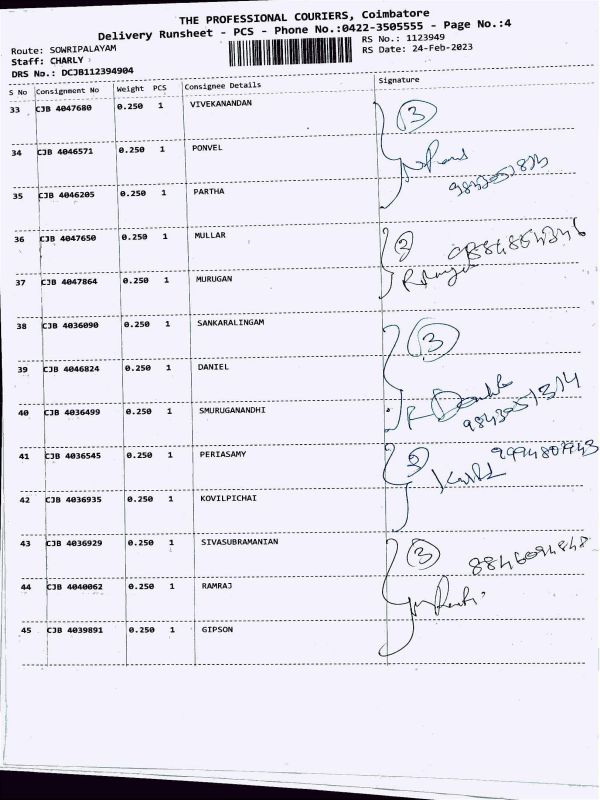 THE PROFESSIONAL COURIERS, Coimbatore
Delivery Runsheet - PCS - Phone No.:0422-3505555 - Page No.:4
Route: SOWRIPALAYAM
RS No.: 1123949
Staff: CHARLY
RS Date: 24-Feb-2023
DRS No.: DCJB112394904
S No Consignment No Weight PCS Consignee Details Signature
33 CJB 4047680 0.250 1 VIVEKANANDAN
3
34 CJB 4046571 0.250 1 PONVEL
35 CJB 4046205 0.250 1 PARTHA
36 CJB 4047650 0.250 1 MULLAR
37 CJB 4047864 0.250 1 MURUGAN
38 CJB 4036090 0.250 1 SANKARALINGAM
3
39 CJB 4046824 0.250 1 DANIEL
40 CJB 4036499 0.250 1 SMURUGANANDHI
41 CJB 4036545 0.250 1 PERIASAMY
42 CJB 4036935 0.250 1 KOVILPICHAI
43 CJB 4036929 0.250 1 SIVASUBRAMANIAN
3
44 CJB 4040062 0.250 1 RAMRAJ
45 CJB 4039891 0.250 1 GIPSON